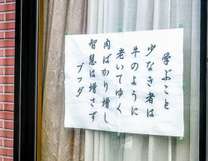 学ぶこと
少なき者は
牛のように
老いてゆく
肉ばかり増し
智慧は増さず
ブッダ